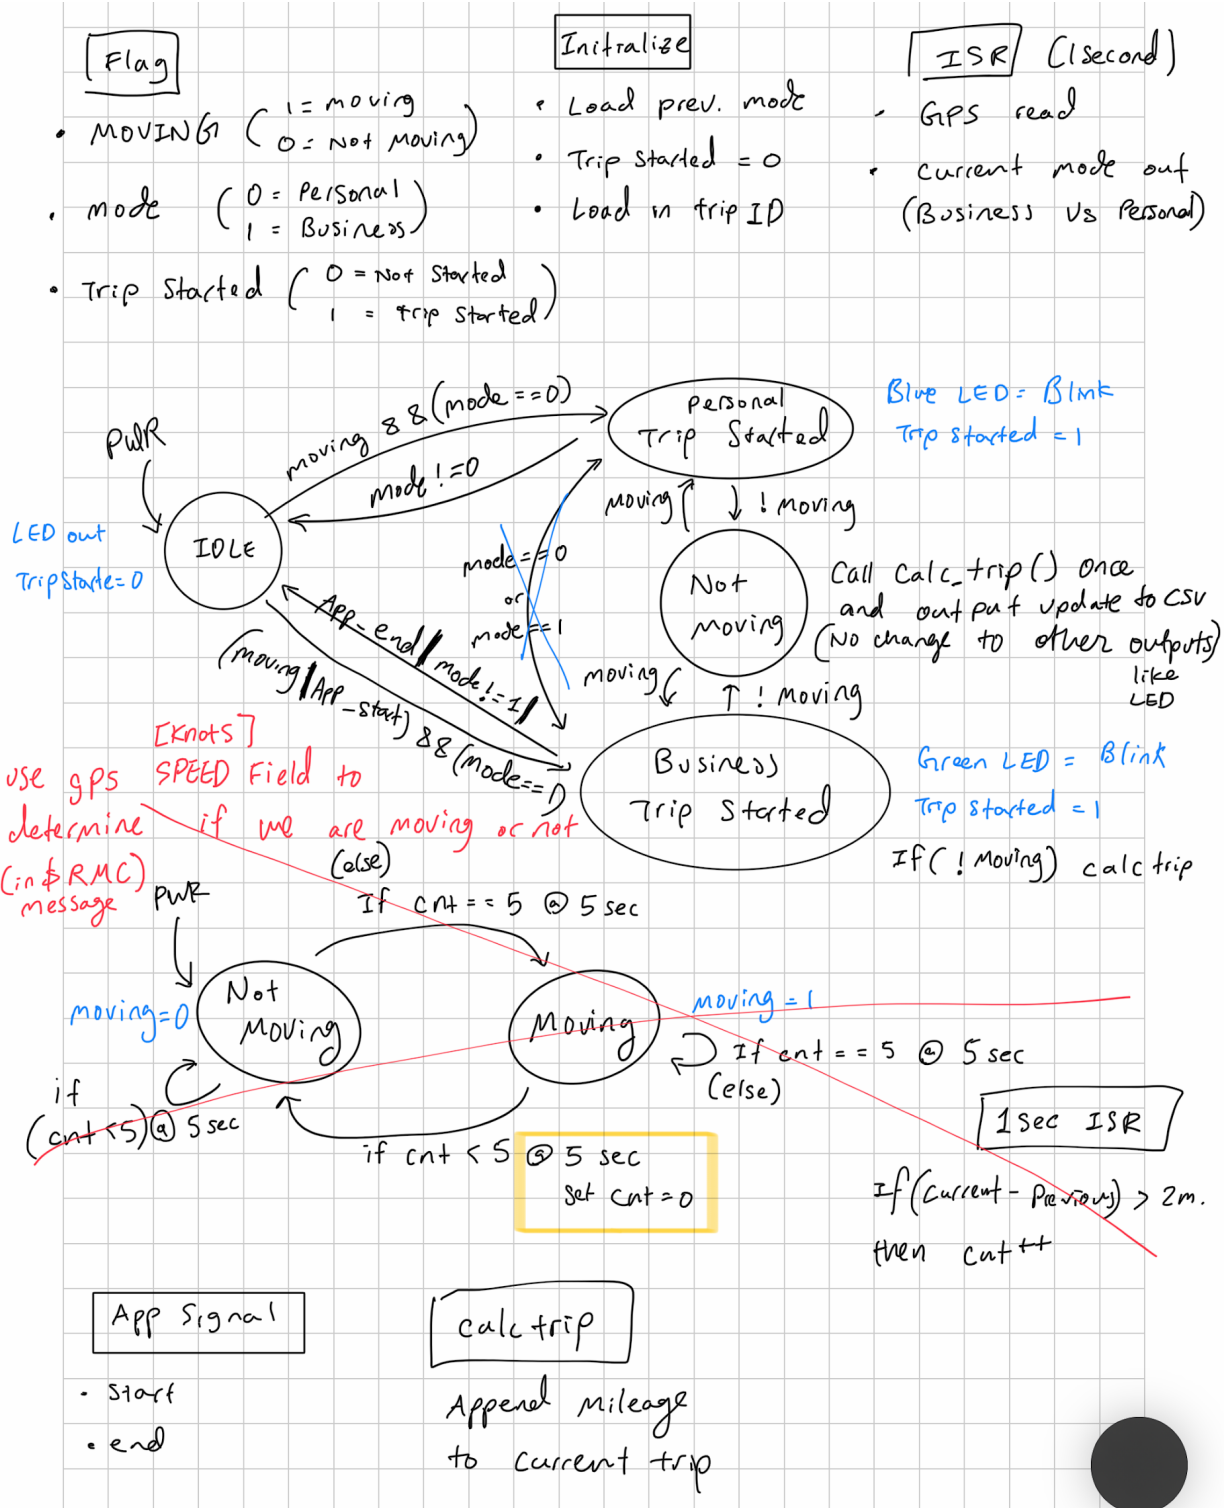 Flag
• MOVING ( 1 = moving
0 = Not Moving)
• mode ( 0 = Personal
1 = Business)
• Trip Started ( 0 = Not Started
1 = trip started)
Initialize
• Load prev. mode
• Trip Started = 0
• Load in trip ID
ISR (1second)
• GPS read
• current mode out
(Business vs Personal)
PWR
moving && (mode==0)
mode!=0
IDLE
LED out
Trip Starte=0
Personal
Trip Started
Blue LED = Blink
Trip Started = 1
moving
! moving
mode==0
or
mode==1
Not
moving
Call Calc_trip() once
and output update to CSV
(No change to other outputs)
like
LED
App_end | mode!=1
(moving | App_start) && (mode==1)
moving
! moving
Business
Trip Started
Green LED = Blink
Trip Started = 1
If(!Moving) calctrip
[Knots]
use gps SPEED Field to
determine if we are moving or not
(in $RMC)
message
PWR
(else)
If cnt == 5 @ 5 sec
Not
Moving
moving=0
Moving
moving=1
If cnt == 5 @ 5 sec
(else)
if
(cnt<5) @ 5 sec
if cnt < 5 @ 5 sec
set cnt=0
1sec ISR
If(Current - Previous) > 2m.
then cnt++
App Signal
• start
• end
calctrip
Append Mileage
to current trip